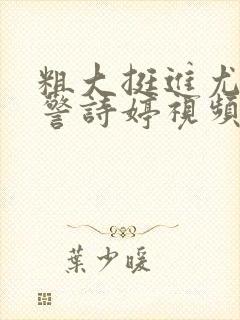 粗大挺進尤
警詩婷視頻
葉少暖